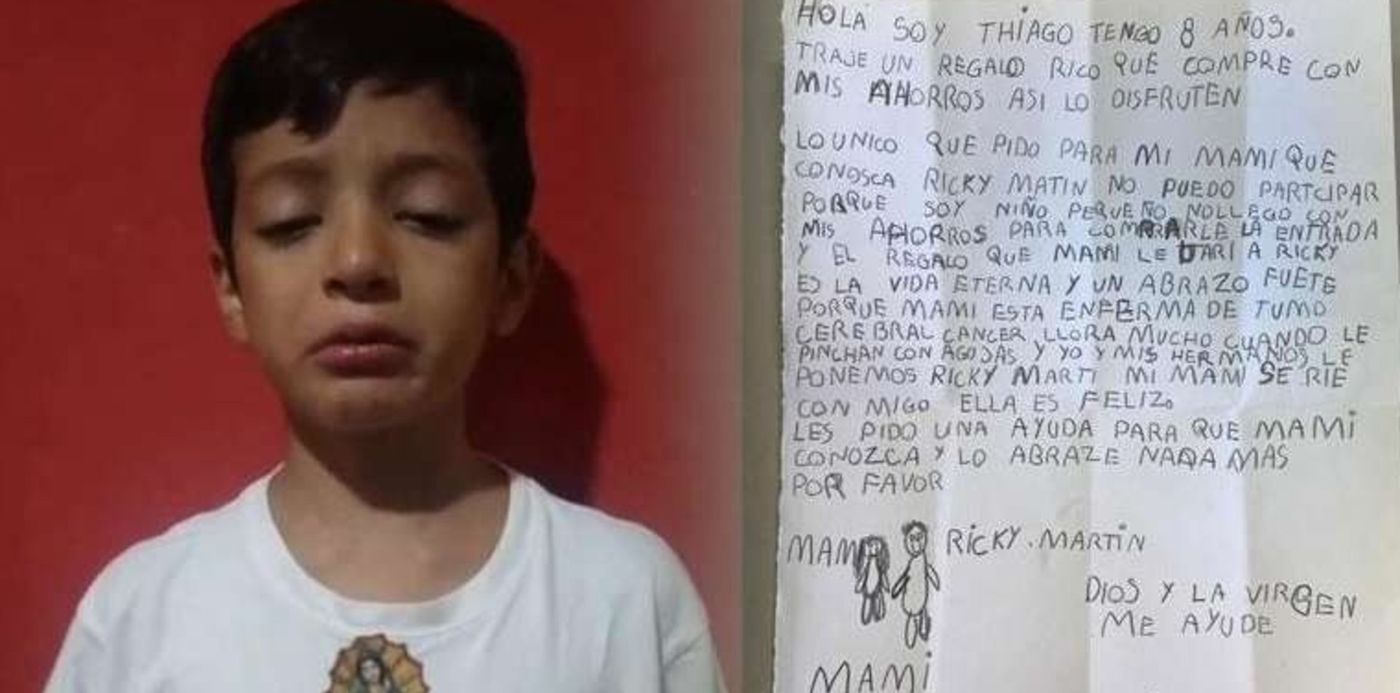 HOLA SOY THIAGO TENGO 8 AÑOS.
TRAJE UN REGALO RICO QUE COMPRE CON
MIS AHORROS ASI LO DISFRUTEN
LO UNICO QUE PIDO PARA MI MAMI QUE
CONOSCA RICKY MATIN NO PUEDO PARTCIPAR
PORQUE SOY NIÑO PEQUEÑO NOLLEGO CON
MIS AHORROS PARA COMPRARLE LA ENTRADA
Y EL REGALO QUE MAMI LE DARI A RICKY
ES LA VIDA ETERNA Y UN ABRAZO FUETE
PORQUE MAMI ESTA ENFERMA DE TUMO
CEREBRAL CANCER LLORA MUCHO CUANDO LE
PINCHAN CON AGUJAS Y YO Y MIS HERMANOS LE
PONEMOS RICKY MARTI MI MAMI SE RIE
CON MIGO ELLA ES FELIZ.
LES PIDO UNA AYUDA PARA QUE MAMI
CONOZCA Y LO ABRAZE NADA MAS
POR FAVOR
MAMI RICKY.MARTIN
DIOS Y LA VIRGEN
ME AYUDE
MAMI